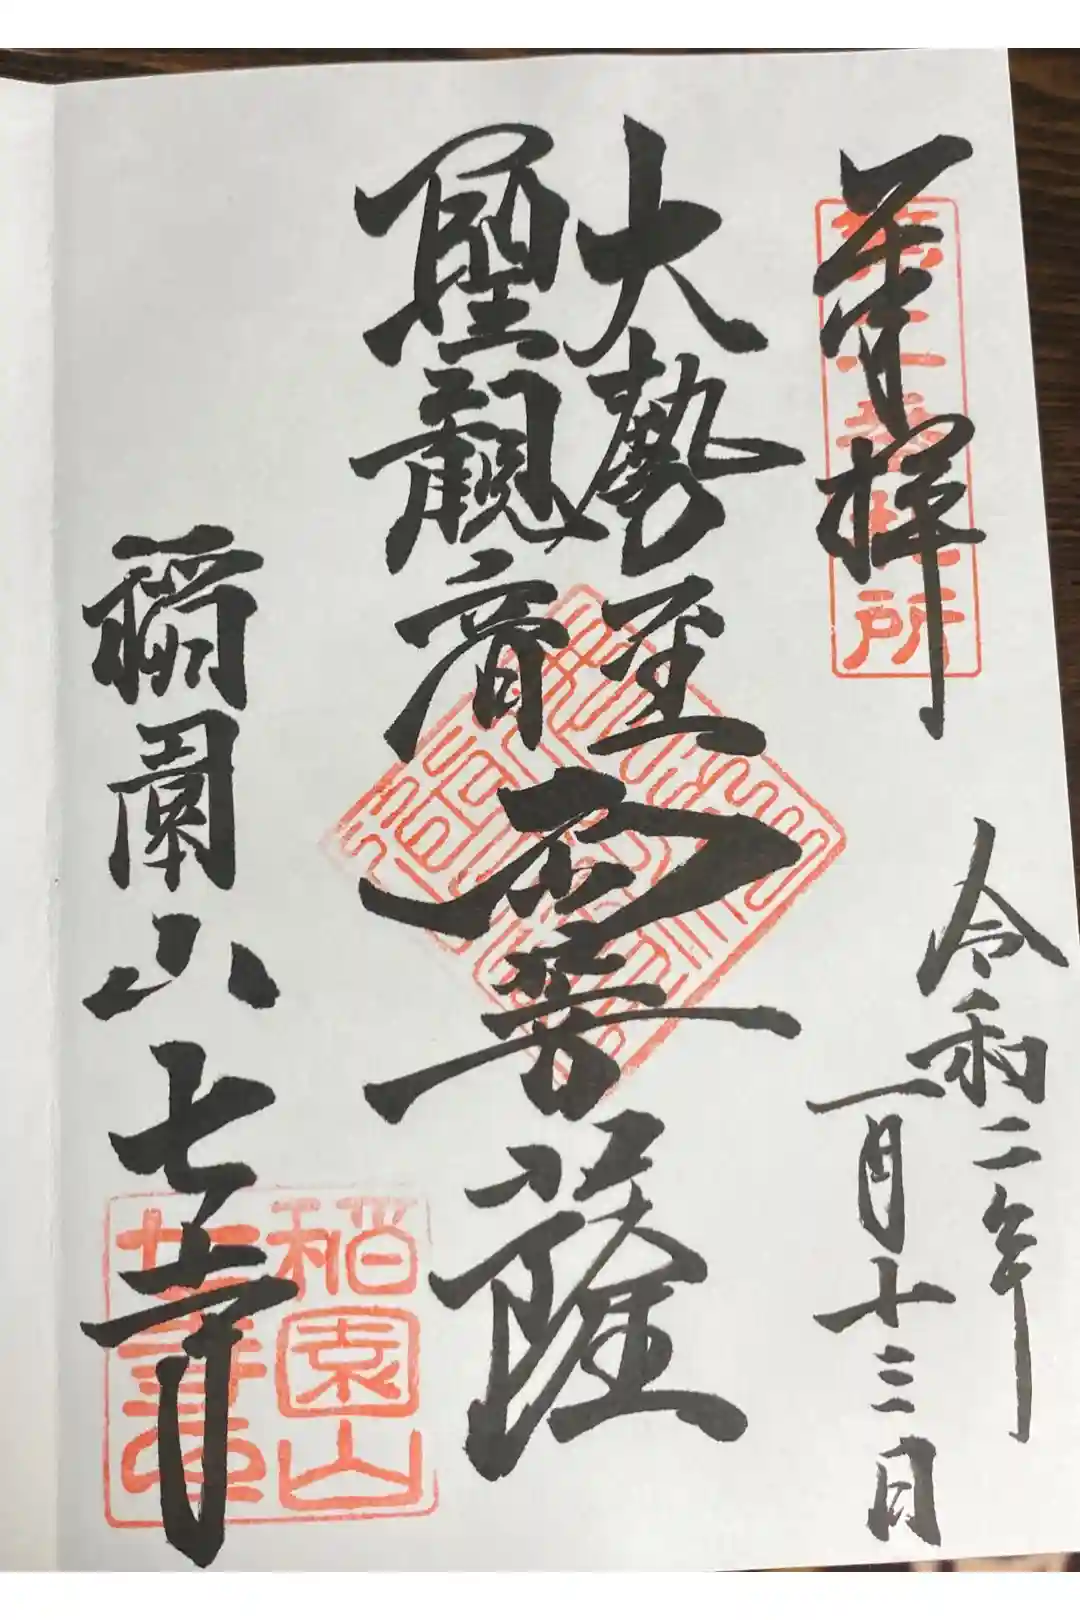 奉拝
令和二年
一月十三日
大勢至
聖観音
両菩薩
稲園山七寺
所
稲園山
七寺印